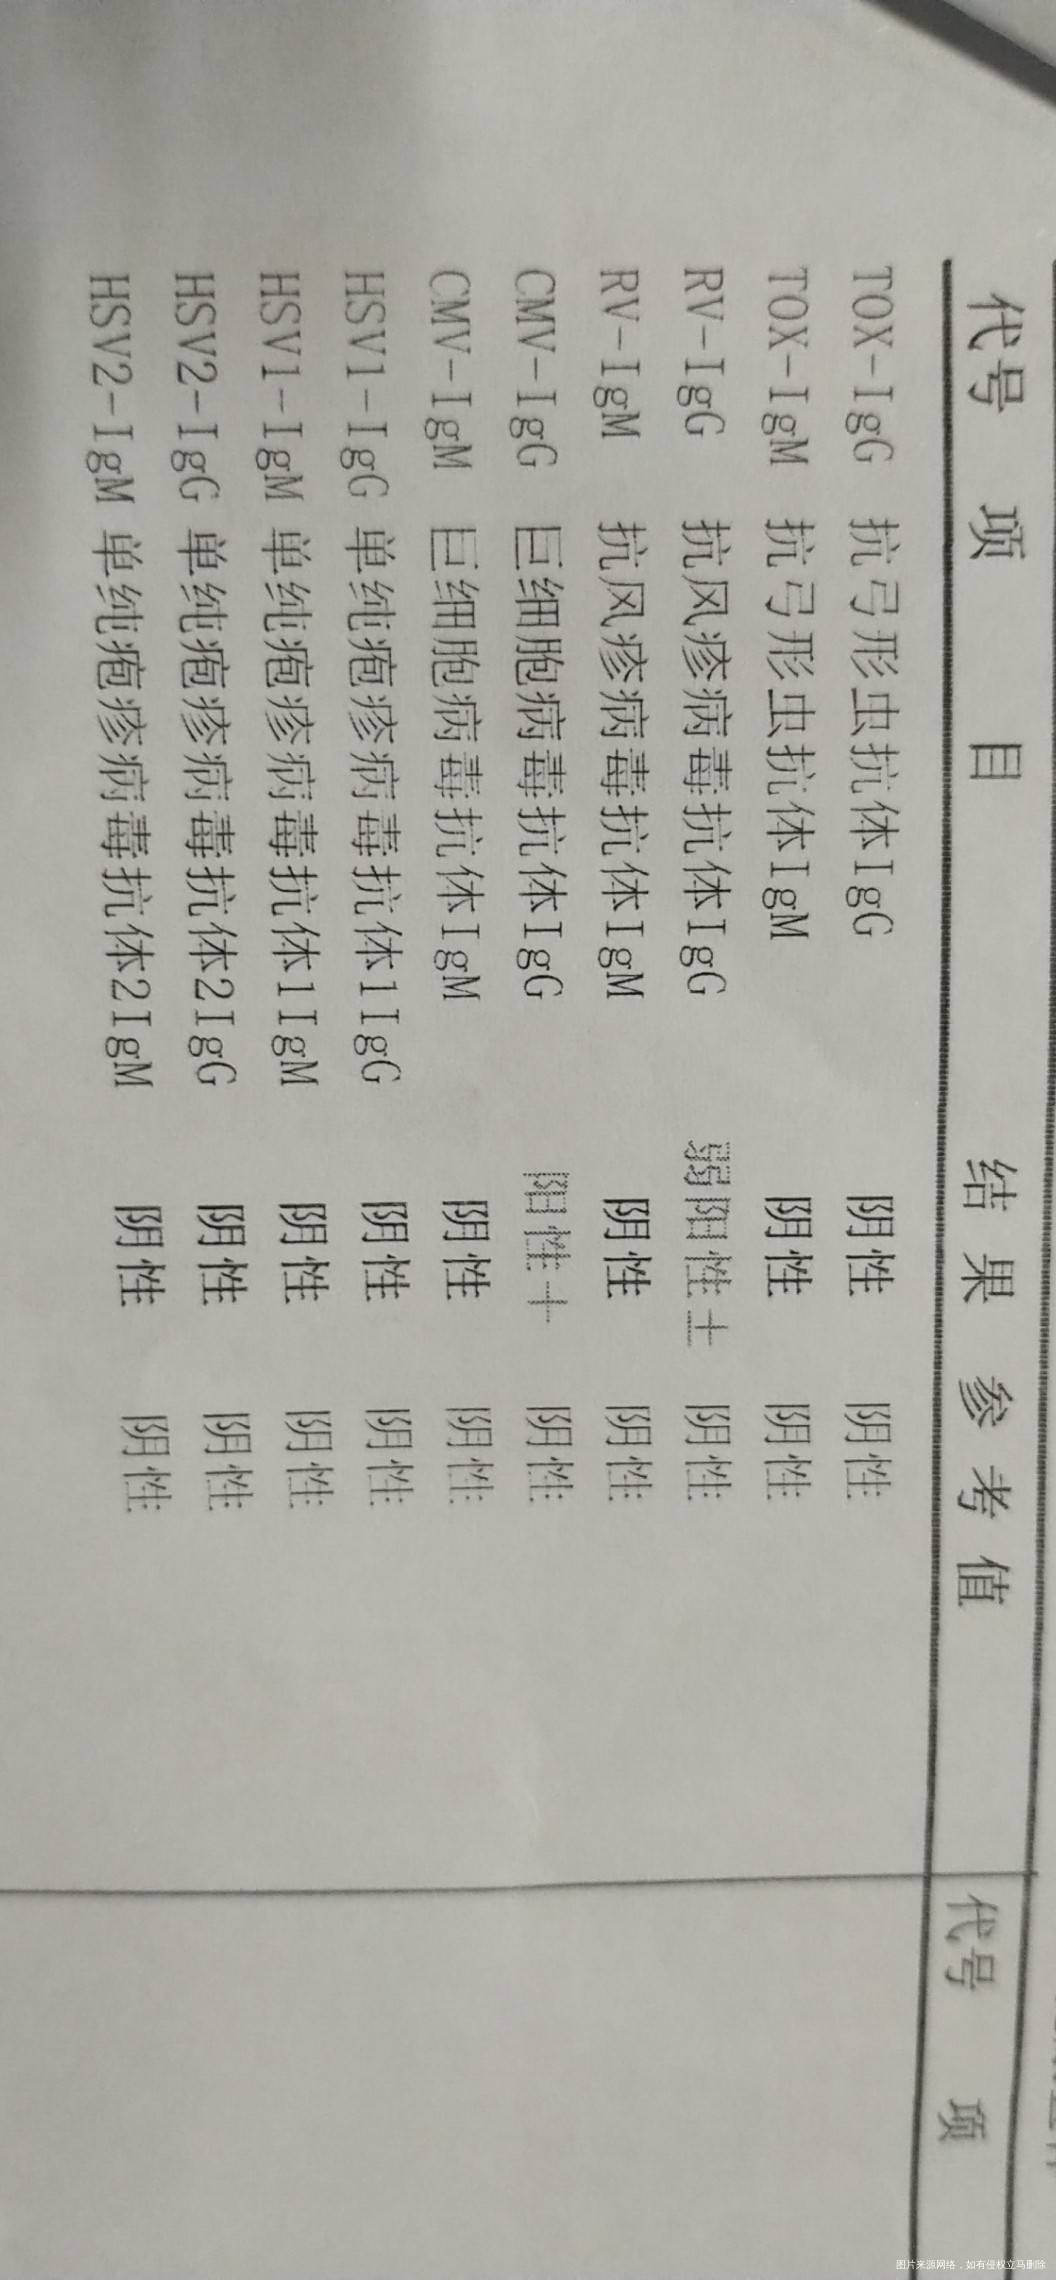 代号 项 目 结 果 参 考 值
TOX-IgG 抗弓形虫抗体IgG 阴性 阴性
TOX-IgM 抗弓形虫抗体IgM 阴性 阴性
RV-IgG 抗风疹病毒抗体IgG 弱阳性± 阴性
RV-IgM 抗风疹病毒抗体IgM 阴性 阴性
CMV-IgG 巨细胞病毒抗体IgG 阳性+ 阴性
CMV-IgM 巨细胞病毒抗体IgM 阴性 阴性
HSV1-IgG 单纯疱疹病毒抗体1IgG 阴性 阴性
HSV1-IgM 单纯疱疹病毒抗体1IgM 阴性 阴性
HSV2-IgG 单纯疱疹病毒抗体2IgG 阴性 阴性
HSV2-IgM 单纯疱疹病毒抗体2IgM 阴性 阴性
代号 项
图片来源网络，如有侵权立马删除